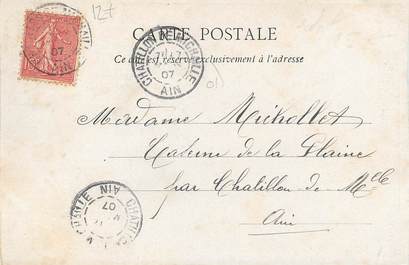 12+
CARTE POSTALE
Ce côté est réservé exclusivement à l'adresse
CHATILLON DE MICHAILLE
07
AIN
Madame Michollet
Caserne de la Plaine
par Chatillon-de-Mlle
Ain
CHATILLON
07
AIN